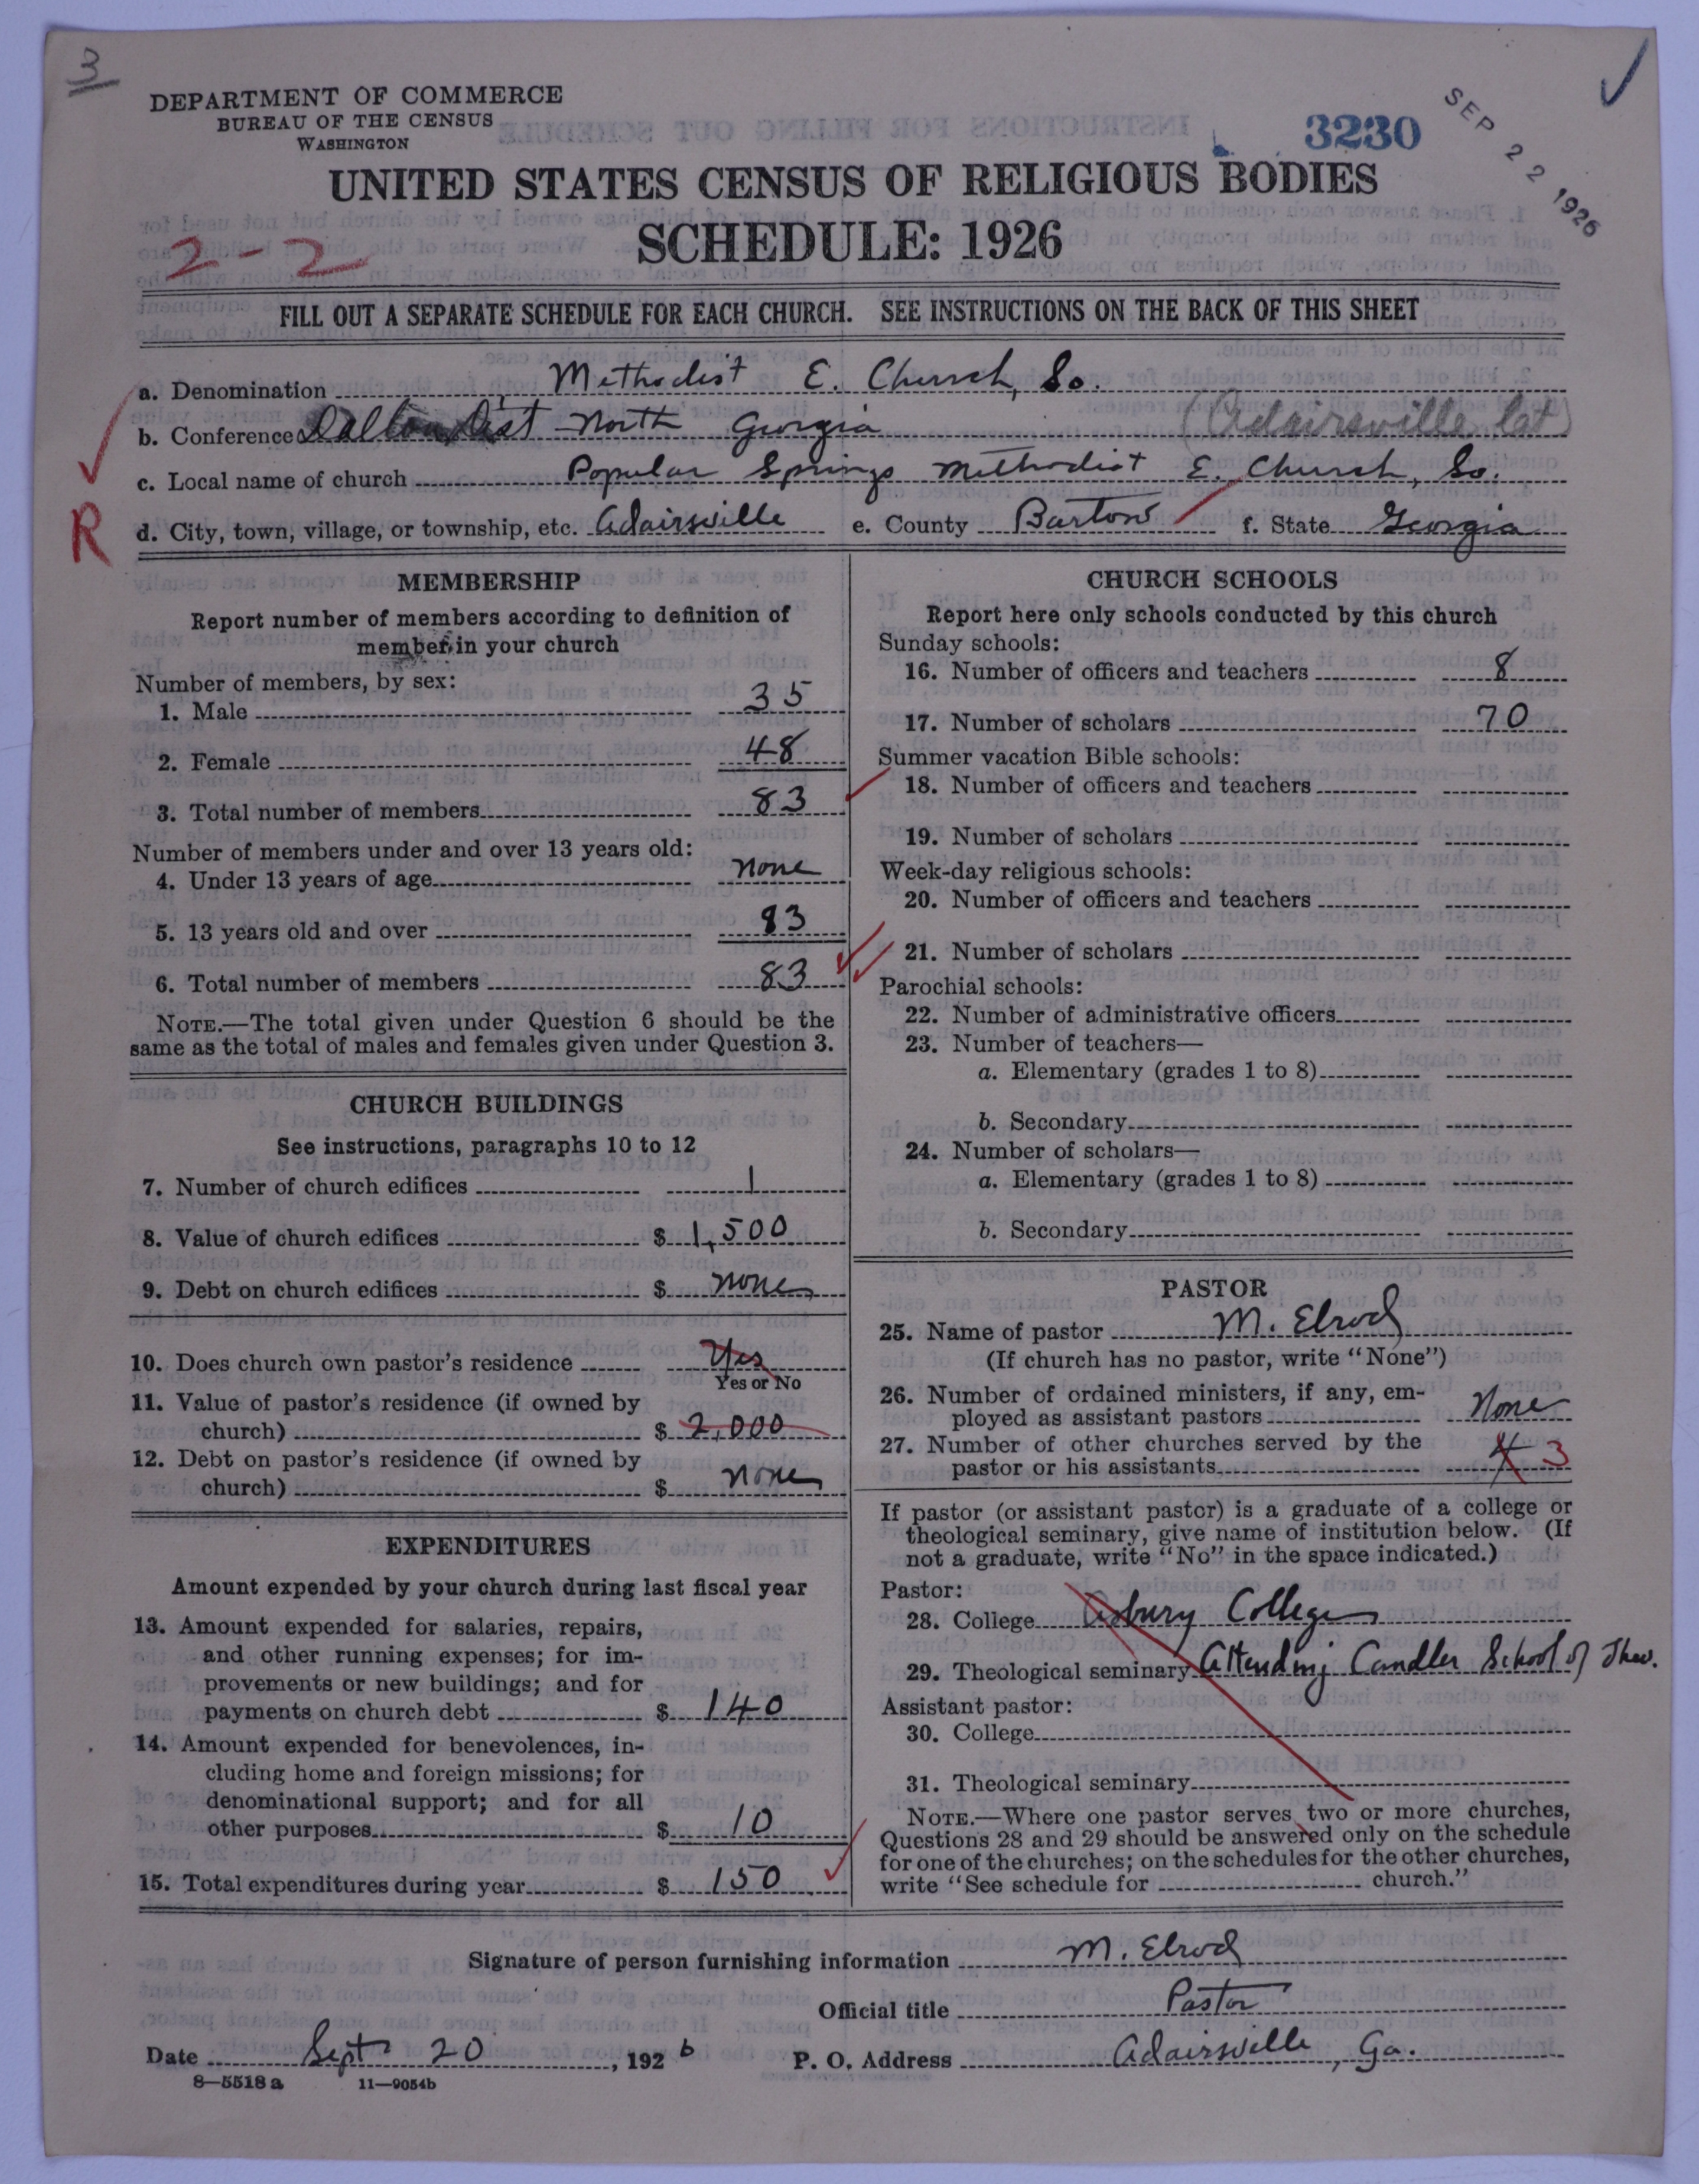 3
DEPARTMENT OF COMMERCE
BUREAU OF THE CENSUS
WASHINGTON
3230
SEP 22 1926
UNITED STATES CENSUS OF RELIGIOUS BODIES
SCHEDULE: 1926
2-2
FILL OUT A SEPARATE SCHEDULE FOR EACH CHURCH. SEE INSTRUCTIONS ON THE BACK OF THIS SHEET
a. Denomination Methodist E. Church, So.
b. Conference Dalton Dist North Georgia (Adairsville
c. Local name of church Popular Springs Methodist E. Church, So.
R
d. City, town, village, or township, etc. Adairsville e. County Bartow f. State Georgia
MEMBERSHIP
Report number of members according to definition of
member in your church
Number of members, by sex:
1. Male 35
2. Female 48
3. Total number of members 83
Number of members under and over 13 years old:
4. Under 13 years of age none
5. 13 years old and over 83
6. Total number of members 83
NOTE.—The total given under Question 6 should be the
same as the total of males and females given under Question 3.
CHURCH BUILDINGS
See instructions, paragraphs 10 to 12
7. Number of church edifices 1
8. Value of church edifices $ 1,500
9. Debt on church edifices $ none
10. Does church own pastor's residence Yes
Yes or No
11. Value of pastor's residence (if owned by
church) $ 2,000
12. Debt on pastor's residence (if owned by
church) $ none
EXPENDITURES
Amount expended by your church during last fiscal year
13. Amount expended for salaries, repairs,
and other running expenses; for im-
provements or new buildings; and for
payments on church debt $ 140
14. Amount expended for benevolences, in-
cluding home and foreign missions; for
denominational support; and for all
other purposes $ 10
15. Total expenditures during year $ 150
CHURCH SCHOOLS
Report here only schools conducted by this church
Sunday schools:
16. Number of officers and teachers 8
17. Number of scholars 70
Summer vacation Bible schools:
18. Number of officers and teachers
19. Number of scholars
Week-day religious schools:
20. Number of officers and teachers
21. Number of scholars
Parochial schools:
22. Number of administrative officers
23. Number of teachers—
a. Elementary (grades 1 to 8)
b. Secondary
24. Number of scholars—
a. Elementary (grades 1 to 8)
b. Secondary
PASTOR
25. Name of pastor M. Elrod
(If church has no pastor, write "None")
26. Number of ordained ministers, if any, em-
ployed as assistant pastors None
27. Number of other churches served by the
pastor or his assistants 4 3
If pastor (or assistant pastor) is a graduate of a college or
theological seminary, give name of institution below. (If
not a graduate, write "No" in the space indicated.)
Pastor:
28. College Asbury College
29. Theological seminary Attending Candler School of Theo.
Assistant pastor:
30. College
31. Theological seminary
NOTE.—Where one pastor serves two or more churches,
Questions 28 and 29 should be answered only on the schedule
for one of the churches; on the schedules for the other churches,
write "See schedule for church."
Signature of person furnishing information M. Elrod
Official title Pastor
Date Sept 20, 1926 P. O. Address Adairsville, Ga.
8—5518 a 11—9054b